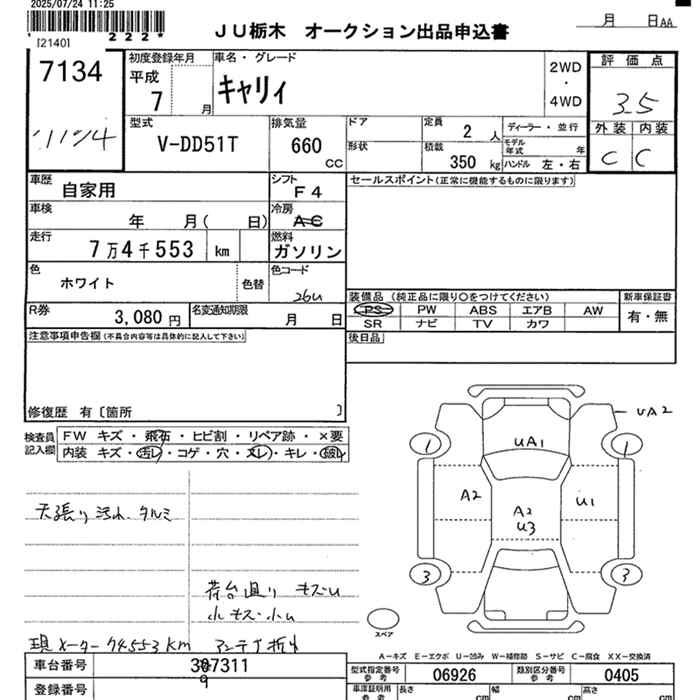 2025/07/24 11:25
222
[2140]
JU栃木 オークション出品申込書
月 日AA
7134
初度登録年月
平成
7 月
車名・グレード
キャリィ
2WD
・
4WD
評価点
3.5
外装 内装
C C
型式
V-DD51T
排気量
660
CC
ドア
形状
定員
2 人
積載
350 kg
ディーラー・並行
モデル年式 年
ハンドル 左・右
車歴
自家用
シフト
F4
セールスポイント(正常に機能するものに限ります)
車検
年 月( 日)
冷房
AC
走行
7万4千553 km
燃料
ガソリン
色
ホワイト
色替
色コード
26U
装備品 (純正品に限り○をつけてください)
新車保証書
PS PW ABS エアB AW
有・無
SR ナビ TV カワ
R券
3,080 円
名変通知期限
月 日
後日品
注意事項申告欄(不具合内容等は具体的に記入して下さい)
修復歴 有〔箇所 〕
検査員記入欄
FW キズ・飛石・ヒビ割・リペア跡・×要
内装 キズ・汚レ・コゲ・穴・スレ・キレ・破レ
UA2
1 1
UA1
A2 U1
A2
U3
3 3
スペア
天張り汚れ タルミ
荷台廻り キズU
小キズ・小U
現メーター74553km アンテナ折れ
A-キズ E-エクボ U-凹み W-補修跡 S-サビ C-腐食 XX-交換済
車台番号
307311
9
型式指定番号
参考
06926
類別区分番号
参考
0405
登録番号
車庫証明用
参考
長さ cm
幅 cm
高さ cm